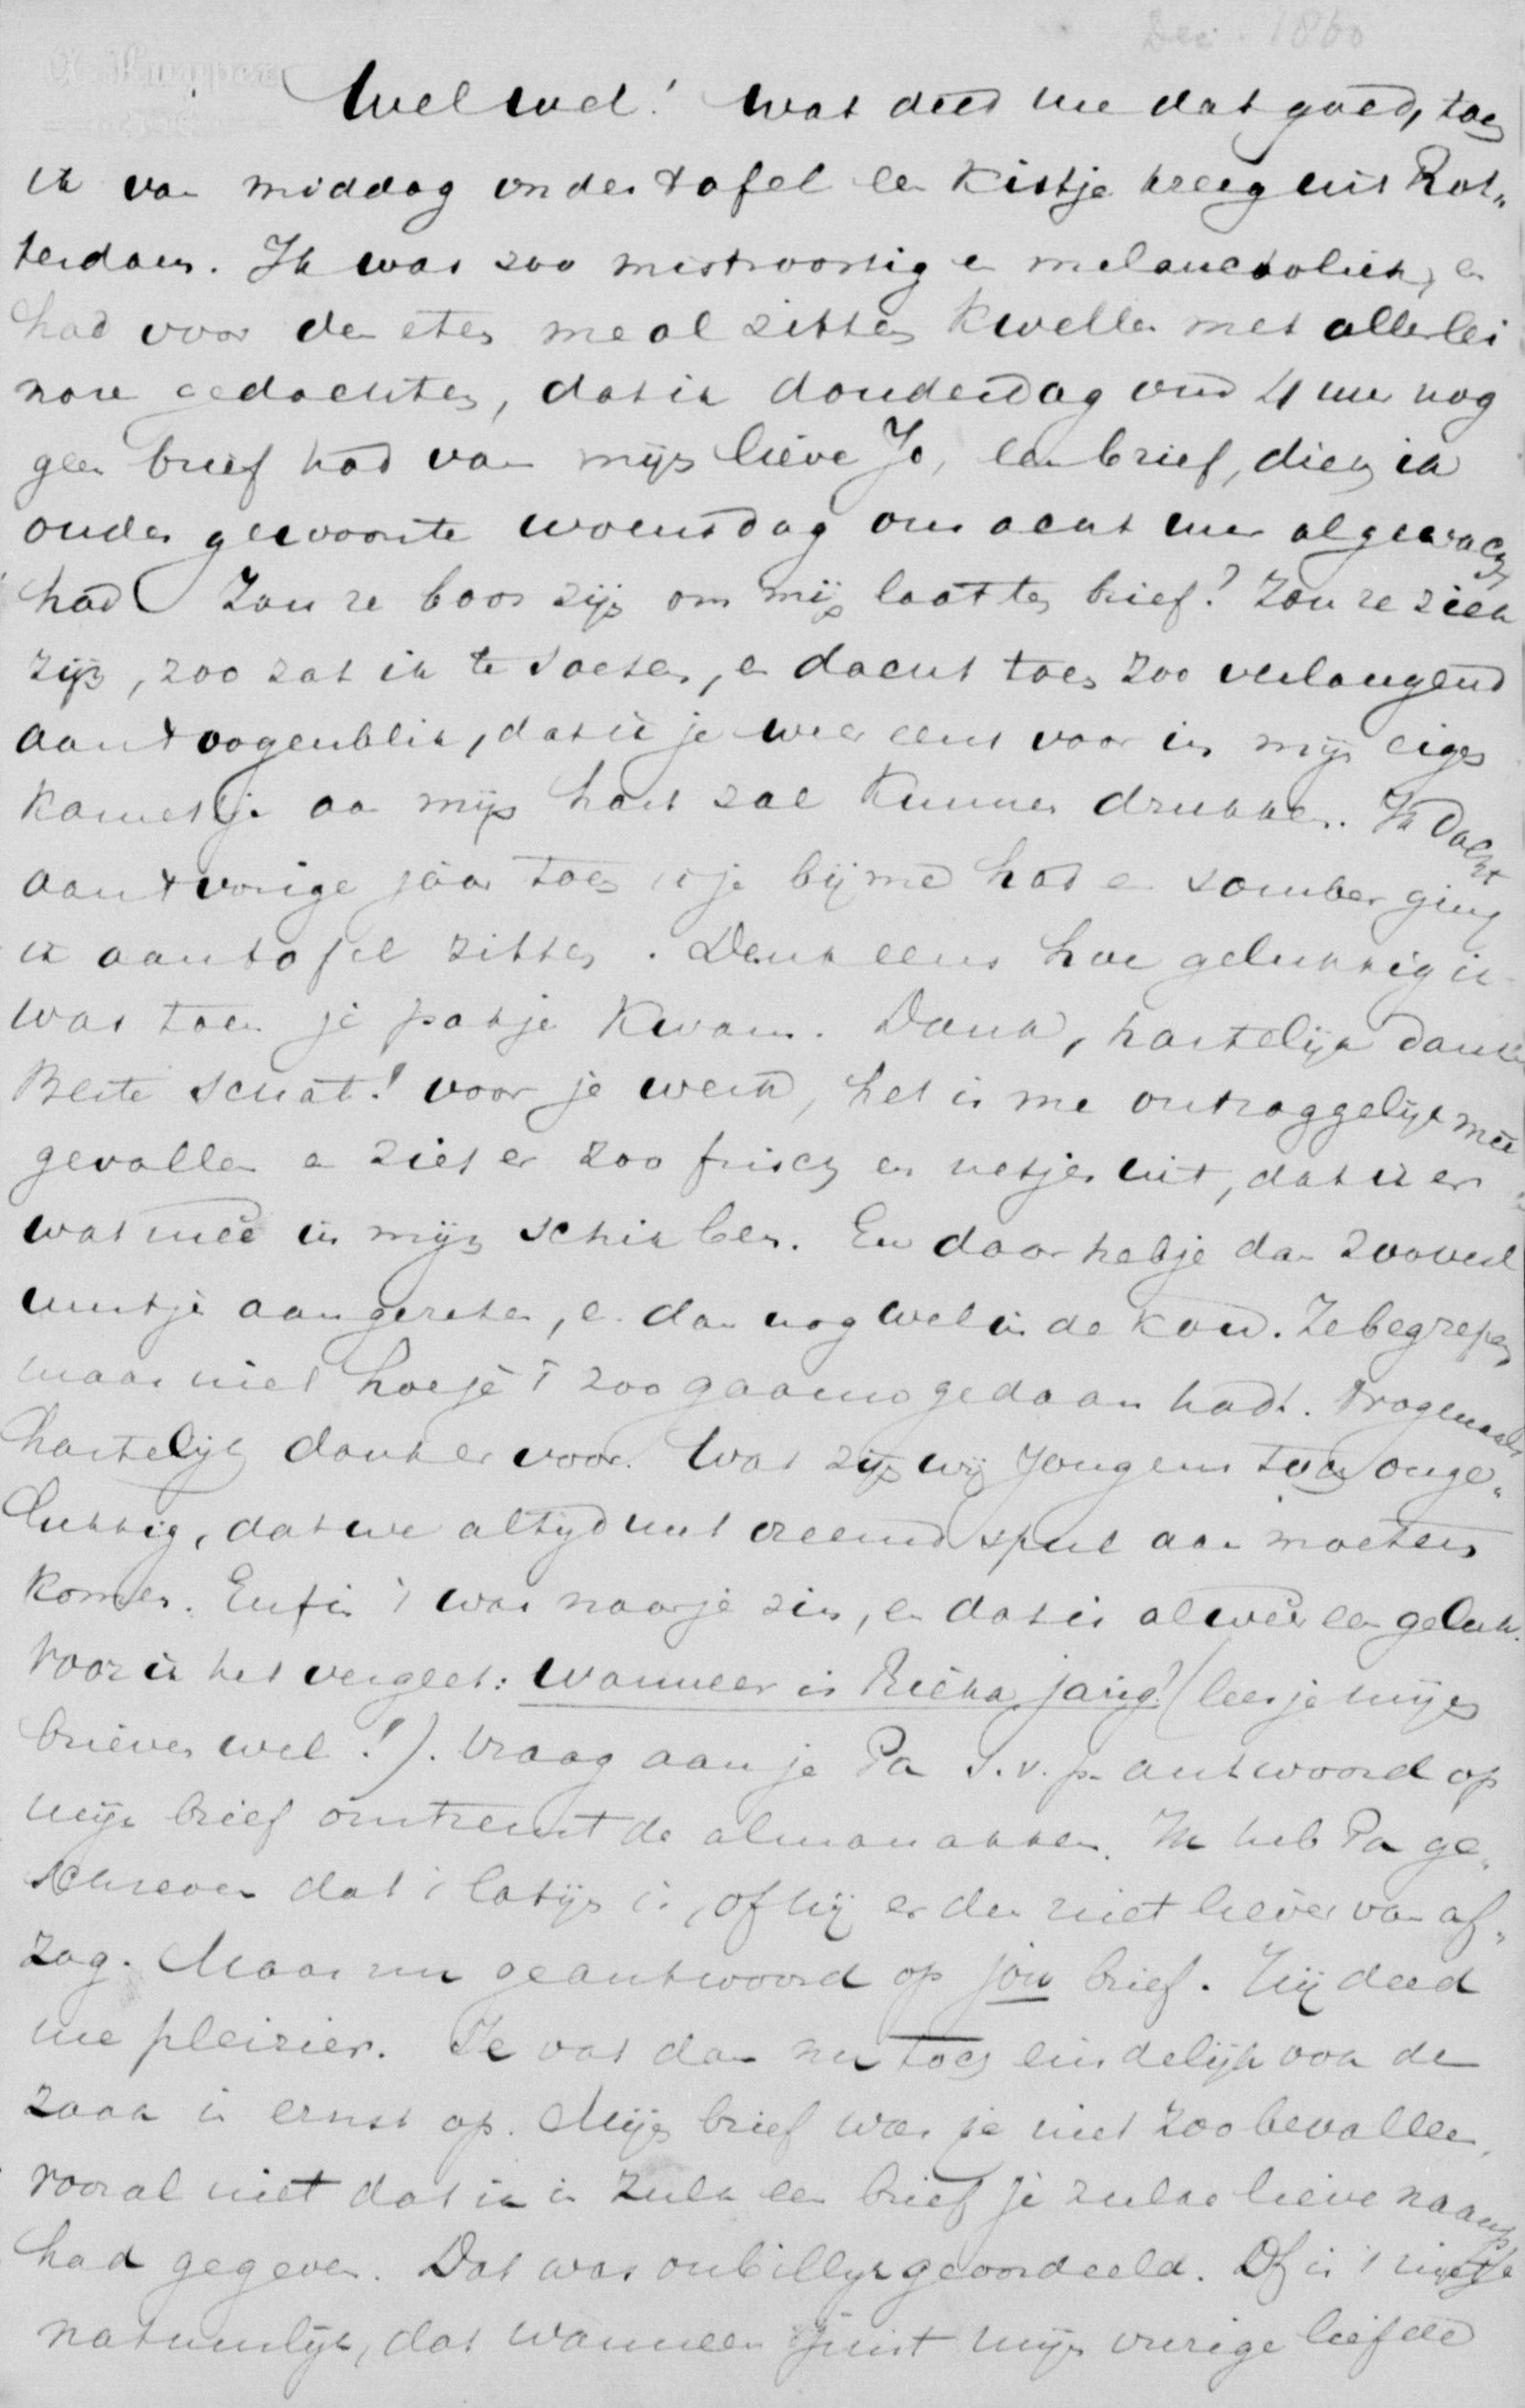 Dec. 1860
A. Kuyper
Wel wel! wat deed me dat goed, toen
ik van middag onder tafel een kistje kreeg uit Rot„
terdam. Ik was zoo mistroostig en melancholiek, en
had voor den eten me al zitten kwellen met allerlei
nare gedachten, dat ik donderdag om 4 uur nog
geen brief had van mijn lieve Jo, een brief, dien ik
ouder gewoonte woensdag om acht uur al gewacht
had. Zou ze boos zijn om mijn laatsten brief? Zou ze ziek
zijn, zoo zat ik te , en dacht toen zoo verlangend
aan 't oogenblik, dat ik je weer eens voor in mijn eigen
kamertje aan mijn hart zal kunnen drukken. Ik dacht
aan 't vorige jaar toen ik je bij me had en somber ging
ik aan tafel zitten. Denk eens hoe gelukkig ik
was toen je pakje kwam. Dank, hartelijk dank
Beste schat! voor je werk, het is me ontzaggelijk mee
gevallen en ziet er zoo frisch en netjes uit, dat ik er
wat mee in mijn schik ben. En daar heb je dan zooveel
uurtjes aan gezeten, en dan nog wel in de kou. Ze begrepen
maar niet hoe je 't zoo gaauw gedaan hadt. Nogmaals
hartelijk dank er voor. Wat zijn wij jongens toch onge„
lukkig, dat we altijd met vreemd spul aan moeten
komen. Enfin 't was naar je zin, en dat is alweer een geluk.
Voor ik het vergeet: wanneer is Rieka jarig? (lees je mijn
brieven wel!). Vraag aan je Pa s.v.p. antwoord op
mijn brief omtrent de almanakken. Ik heb Pa ge„
schreven dat 't latijn is, of hij er dan niet liever van af„
zag. Maar nu geantwoord op jou brief. Hij deed
me pleizier. Je vat dan nu toch eindelijk ook de
zaak in ernst op. Mijn brief was je niet zoo bevallen,
vooral niet dat ik in zulk een brief je zulke lieve naampjes
had gegeven. Dat was onbillijk geoordeeld. Of is 't niet
natuurlijk, dat wanneer juist mijn vurige liefde